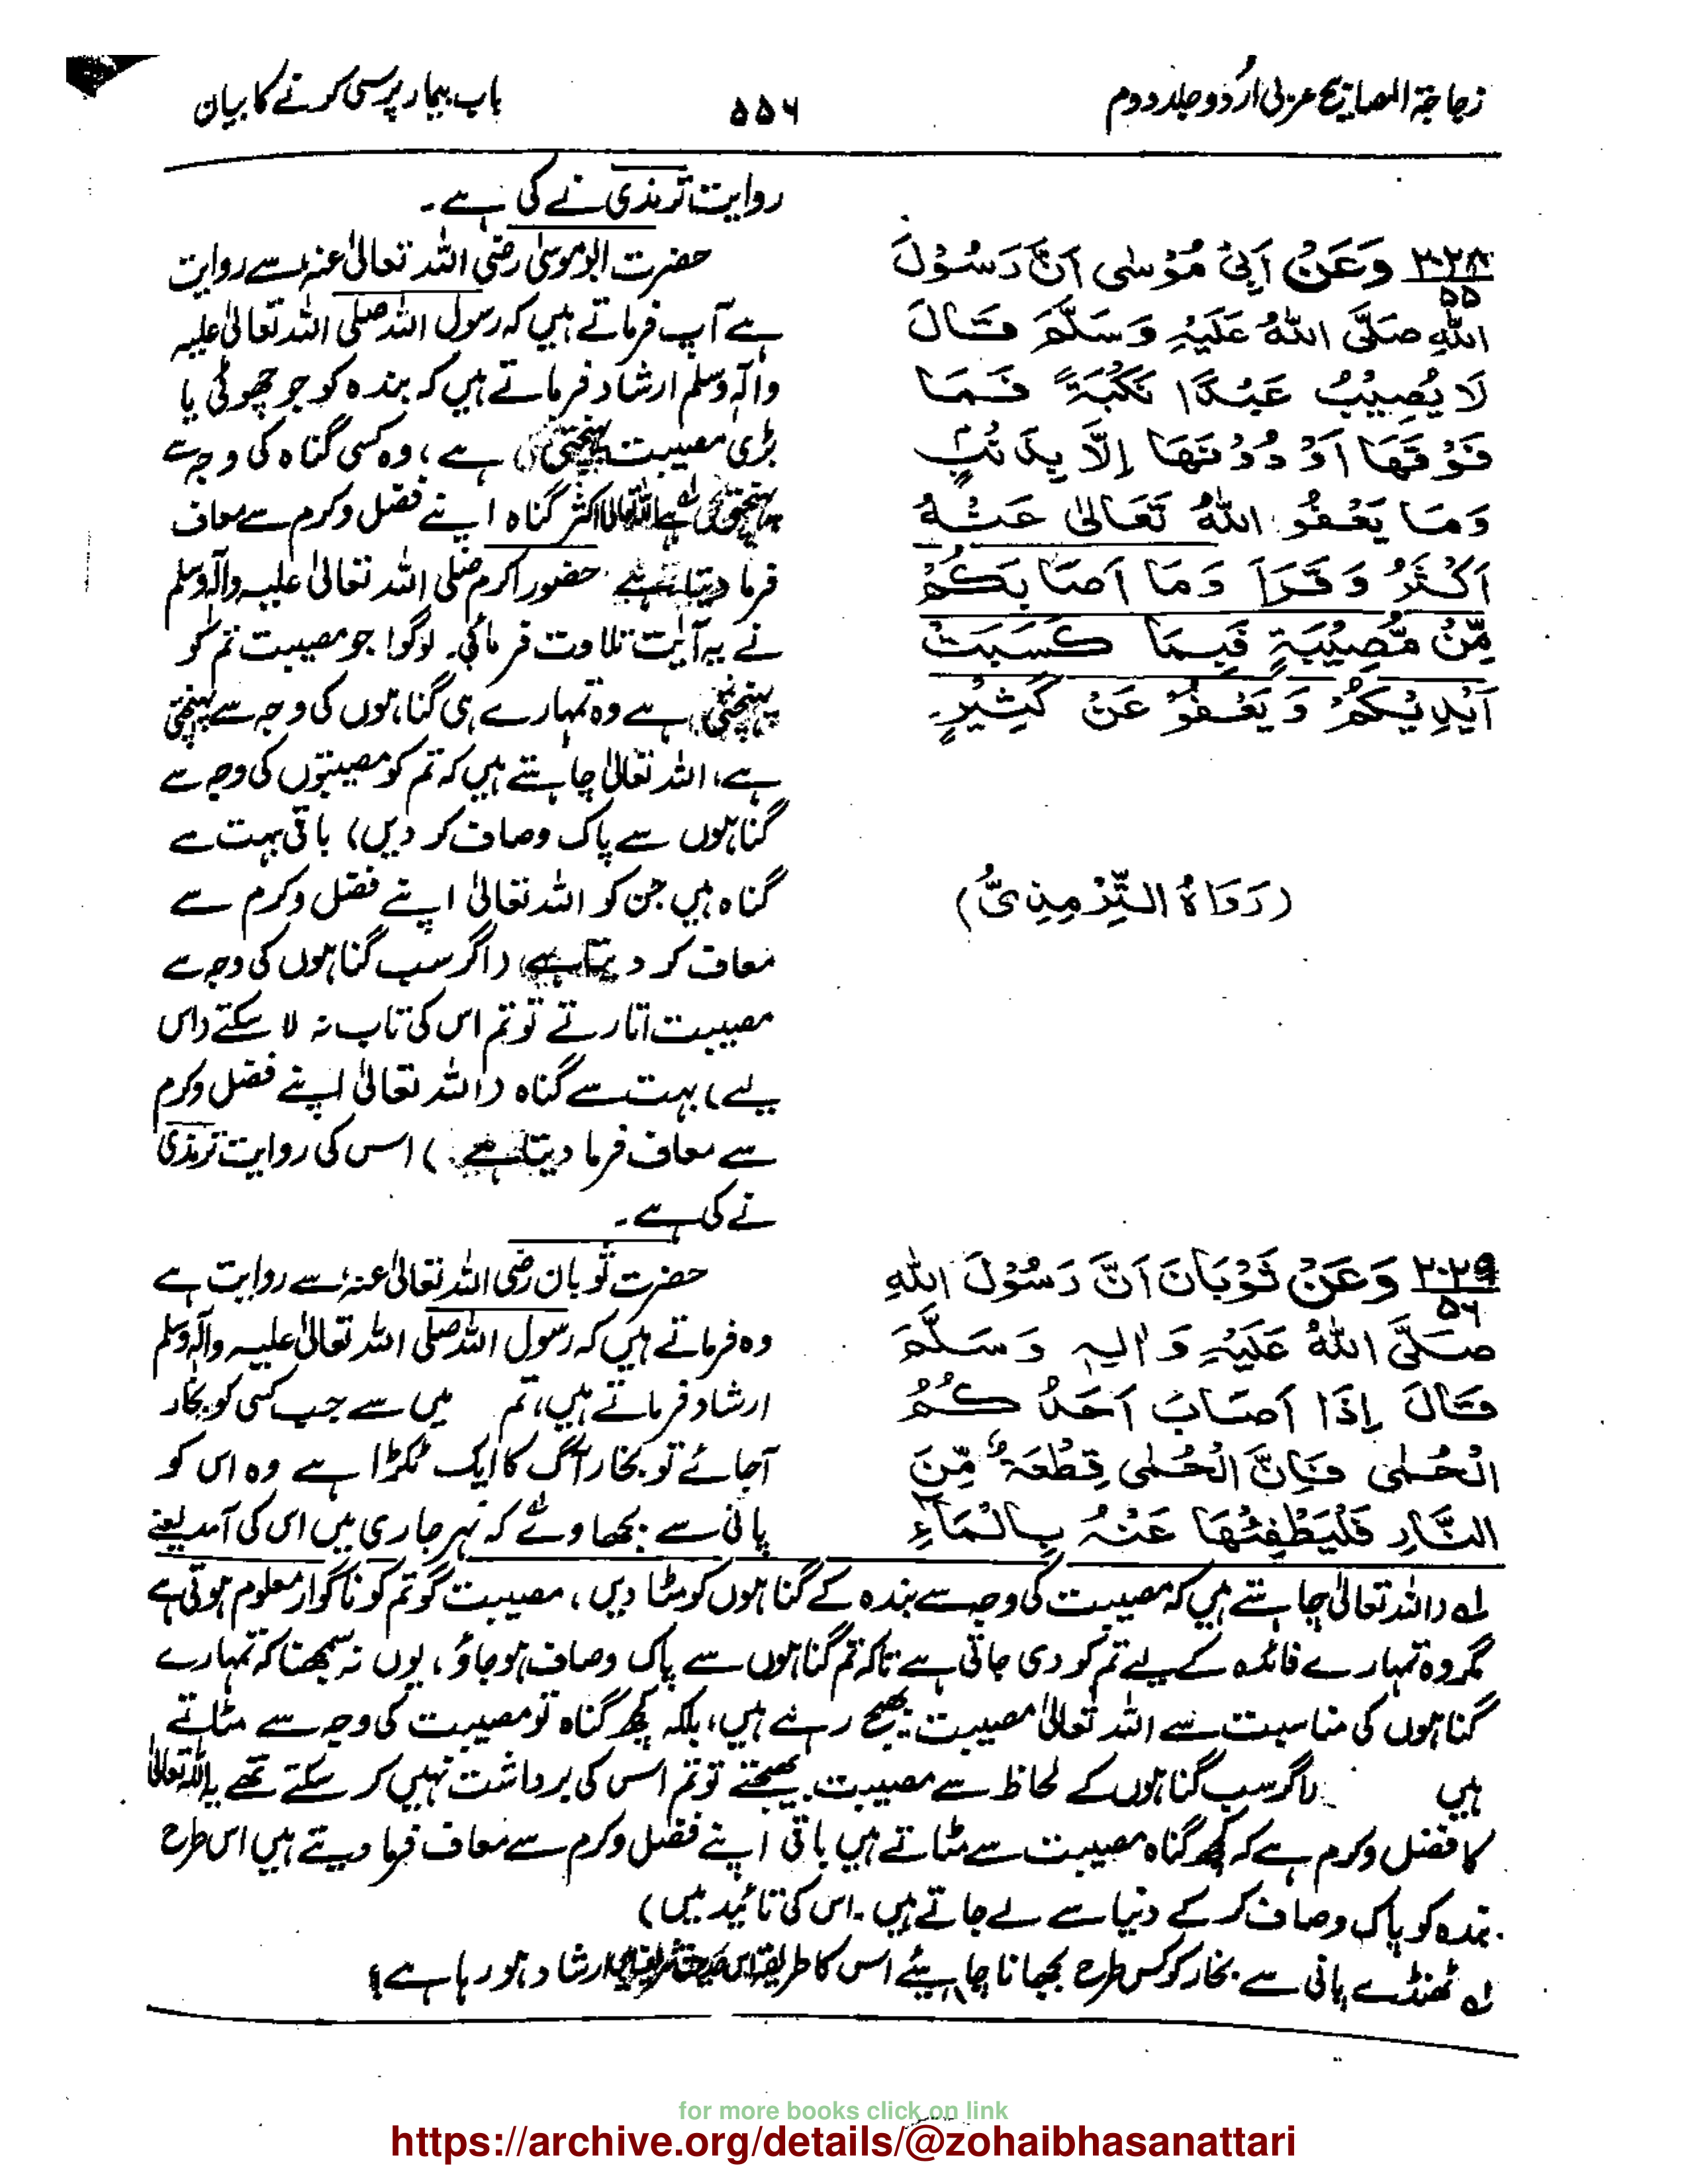 زجاجۃ المصابیح عربی اردو جلد دوم
۵۵۶
باب بیمار پرسی کرنے کا بیان
روایت ترمذی نے کی ہے۔
۳۰۲۸ وَعَنْ اَبِیْ مُوْسٰی اَنَّ رَسُوْلَ
۵۵
اللّٰہِ صَلَّی اللّٰہُ عَلَیْہِ وَسَلَّمَ قَالَ
لَا یُصِیْبُ عَبْدًا نَکْبَۃٌ فَمَا
فَوْقَھَا اَوْ دُوْنَھَا اِلَّا بِذَنْۢبٍ
وَمَا یَعْفُو اللّٰہُ تَعَالٰی عَنْہُ
اَکْثَرُ وَقَرَأَ وَمَا اَصَابَکُمْ
مِّنْ مُّصِیْبَۃٍ فَبِمَا کَسَبَتْ
اَیْدِیْکُمْ وَیَعْفُوْ عَنْ کَثِیْرٍ۔
(رَوَاہُ التِّرْمِذِیُّ)
حضرت ابوموسیٰ رضی اللہ تعالیٰ عنہ، سے روایت
ہے آپ فرماتے ہیں کہ رسول اللہ صلی اللہ تعالیٰ علیہ
وآلہٖ وسلم ارشاد فرماتے ہیں کہ بندہ کو جو چھوٹی یا
بڑی مصیبت پہنچتی ہے، وہ کسی گناہ کی وجہ سے
پہنچتی ہے اللہ تعالیٰ اکثر گناہ اپنے فضل وکرم سے معاف
فرما دیتا ہے حضور اکرم صلی اللہ تعالیٰ علیہ وآلہٖ وسلم
نے یہ آیت تلاوت فرمائی۔ لوگو! جو مصیبت تم کو
پہنچتی ہے وہ تمہارے ہی گناہوں کی وجہ سے پہنچتی
ہے، اللہ تعالیٰ چاہتے ہیں کہ تم کو مصیبتوں کی وجہ سے
گناہوں سے پاک وصاف کر دیں) باقی بہت سے
گناہ ہیں جن کو اللہ تعالیٰ اپنے فضل وکرم سے
معاف کر دیتا ہے (اگر سب گناہوں کی وجہ سے
مصیبت اتارتے تو تم اس کی تاب نہ لا سکتے (اس
لیے) بہت سے گناہ (اللہ تعالیٰ اپنے فضل وکرم
سے معاف فرما دیتا ہے۔) اس کی روایت ترمذی
نے کی ہے۔
۳۰۲۹ وَعَنْ ثَوْبَانَ اَنَّ رَسُوْلَ اللّٰہِ
۵۶
صَلَّی اللّٰہُ عَلَیْہِ وَاٰلِہٖ وَسَلَّمَ
قَالَ اِذَا اَصَابَ اَحَدُکُمُ
الْحُمّٰی فَاِنَّ الْحُمّٰی قِطْعَۃٌ مِّنَ
النَّارِ فَلْیُطْفِئْھَا عَنْہُ بِالْمَاۤءِ
حضرت ثوبان رضی اللہ تعالیٰ عنہ، سے روایت ہے
وہ فرماتے ہیں کہ رسول اللہ صلی اللہ تعالیٰ علیہ وآلہٖ وسلم
ارشاد فرماتے ہیں، تم میں سے جب کسی کو بخار
آجائے تو بخار آگ کا ایک ٹکڑا ہے وہ اس کو
پانی سے بجھاوے کہ نہر جاری میں اس کی آمد یعنے
لہ (اللہ تعالیٰ چاہتے ہیں کہ مصیبت کی وجہ سے بندہ کے گناہوں کو مٹا دیں، مصیبت گو تم کو ناگوار معلوم ہوتی ہے
مگر وہ تمہارے فائدہ کے لیے تم کو دی جاتی ہے تاکہ تم گناہوں سے پاک وصاف ہو جاؤ، یوں نہ سمجھنا کہ تمہارے
گناہوں کی مناسبت سے اللہ تعالیٰ مصیبت بھیج رہے ہیں، بلکہ کچھ گناہ تو مصیبت کی وجہ سے مٹاتے
ہیں (اگر سب گناہوں کے لحاظ سے مصیبت بھیجتے تو تم اس کی برداشت نہیں کر سکتے تھے یہ اللہ تعالیٰ
کا فضل وکرم ہے کہ کچھ گناہ مصیبت سے مٹاتے ہیں باقی اپنے فضل وکرم سے معاف فرما دیتے ہیں اس طرح
بندہ کو پاک وصاف کر کے دنیا سے لے جاتے ہیں۔ اس کی تائید میں)
لہ ٹھنڈے پانی سے بخار کو کس طرح بجھانا چاہیئے اس کا طریقہ اس ارشاد ہو رہا ہے؛
for more books click on link
https://archive.org/details/@zohaibhasanattari